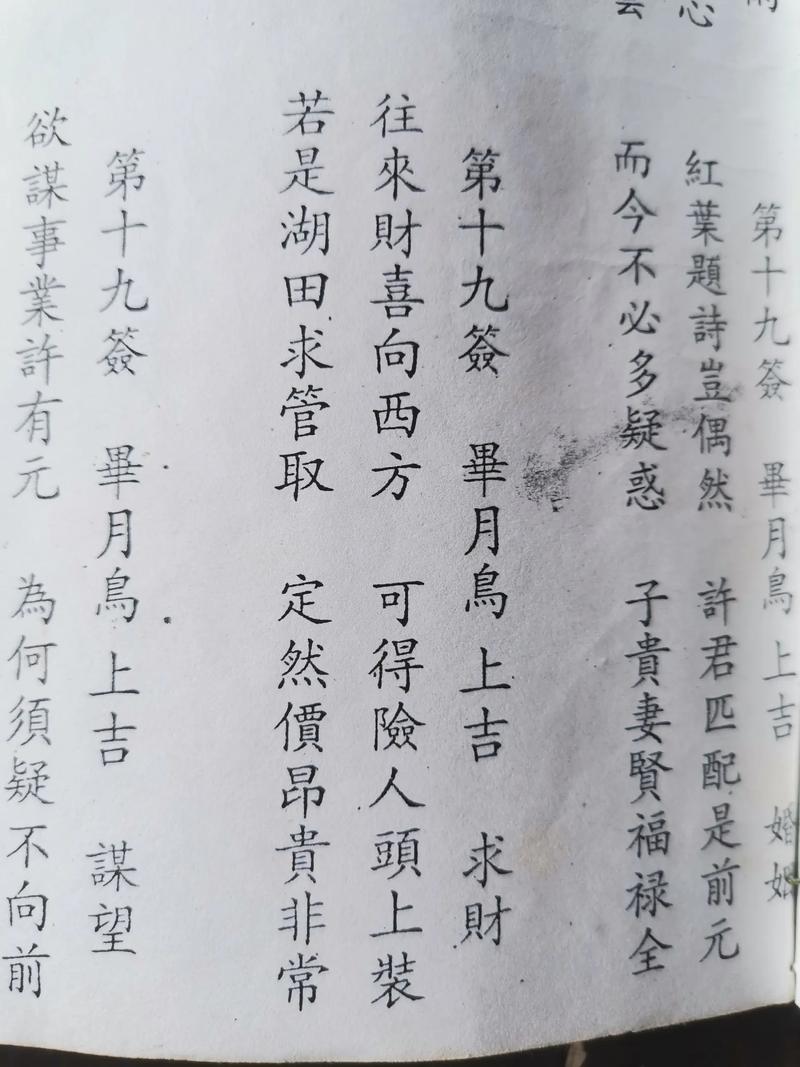 第十九簽　畢月鳥　上吉　婚姻
紅葉題詩豈偶然　許君匹配是前元
而今不必多疑惑　子貴妻賢福祿全
第十九簽　畢月鳥　上吉　求財
往來財喜向西方　可得險人頭上裝
若是湖田求管取　定然價昂貴非常
第十九簽　畢月鳥　上吉　謀望
欲謀事業許有元　為何須疑不向前